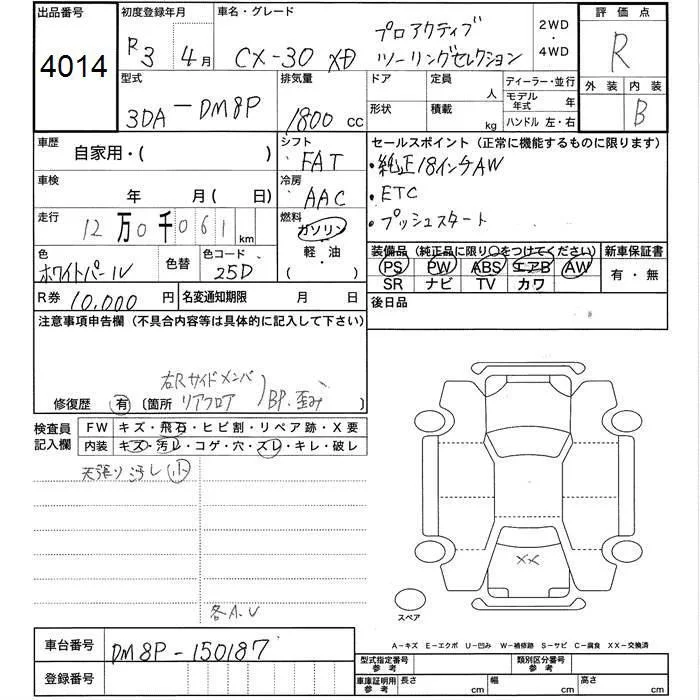 出品番号 初度登録年月 車名・グレード 評価点
4014 R3 4月 CX-30 XD プロアクティブ ツーリングセレクション 2WD・4WD R
型式 3DA-DM8P 排気量 1800cc ドア 定員 人 ディーラー・並行 外装 内装
形状 積載 kg モデル年式 年 B
ハンドル 左・右
車歴 自家用・( ) シフト FAT セールスポイント(正常に機能するものに限ります)
・純正18インチAW
車検 年 月(日) 冷房 AAC ・ETC
走行 12万0千061km 燃料 ガソリン・軽・油( ) ・プッシュスタート
色 ホワイトパール 色替 色コード 25D 装備品(純正品に限り○をつけてください) 新車保証書
PS PW ABS エアB AW 有・無
SR ナビ TV カワ
R券 10,000円 名変通知期限 月 日 後日品
注意事項申告欄(不具合内容等は具体的に記入して下さい)
右Rサイドメンバ
修復歴 有 〔箇所 リアフロア BP.歪み 〕
検査員記入欄 FW キズ・飛石・ヒビ割・リペア跡・X要
内装 キズ・汚レ・コゲ・穴・スレ・キレ・破レ
天張り汚レ小
XX
各A.U
スペア
A-キズ E-エクボ U-凹み W-補修跡 S-サビ C-腐食 XX-交換済
車台番号 DM8P-150187
型式指定番号 参考 類別区分番号 参考
登録番号 車庫証明用 参考 長さ cm 幅 cm 高さ cm